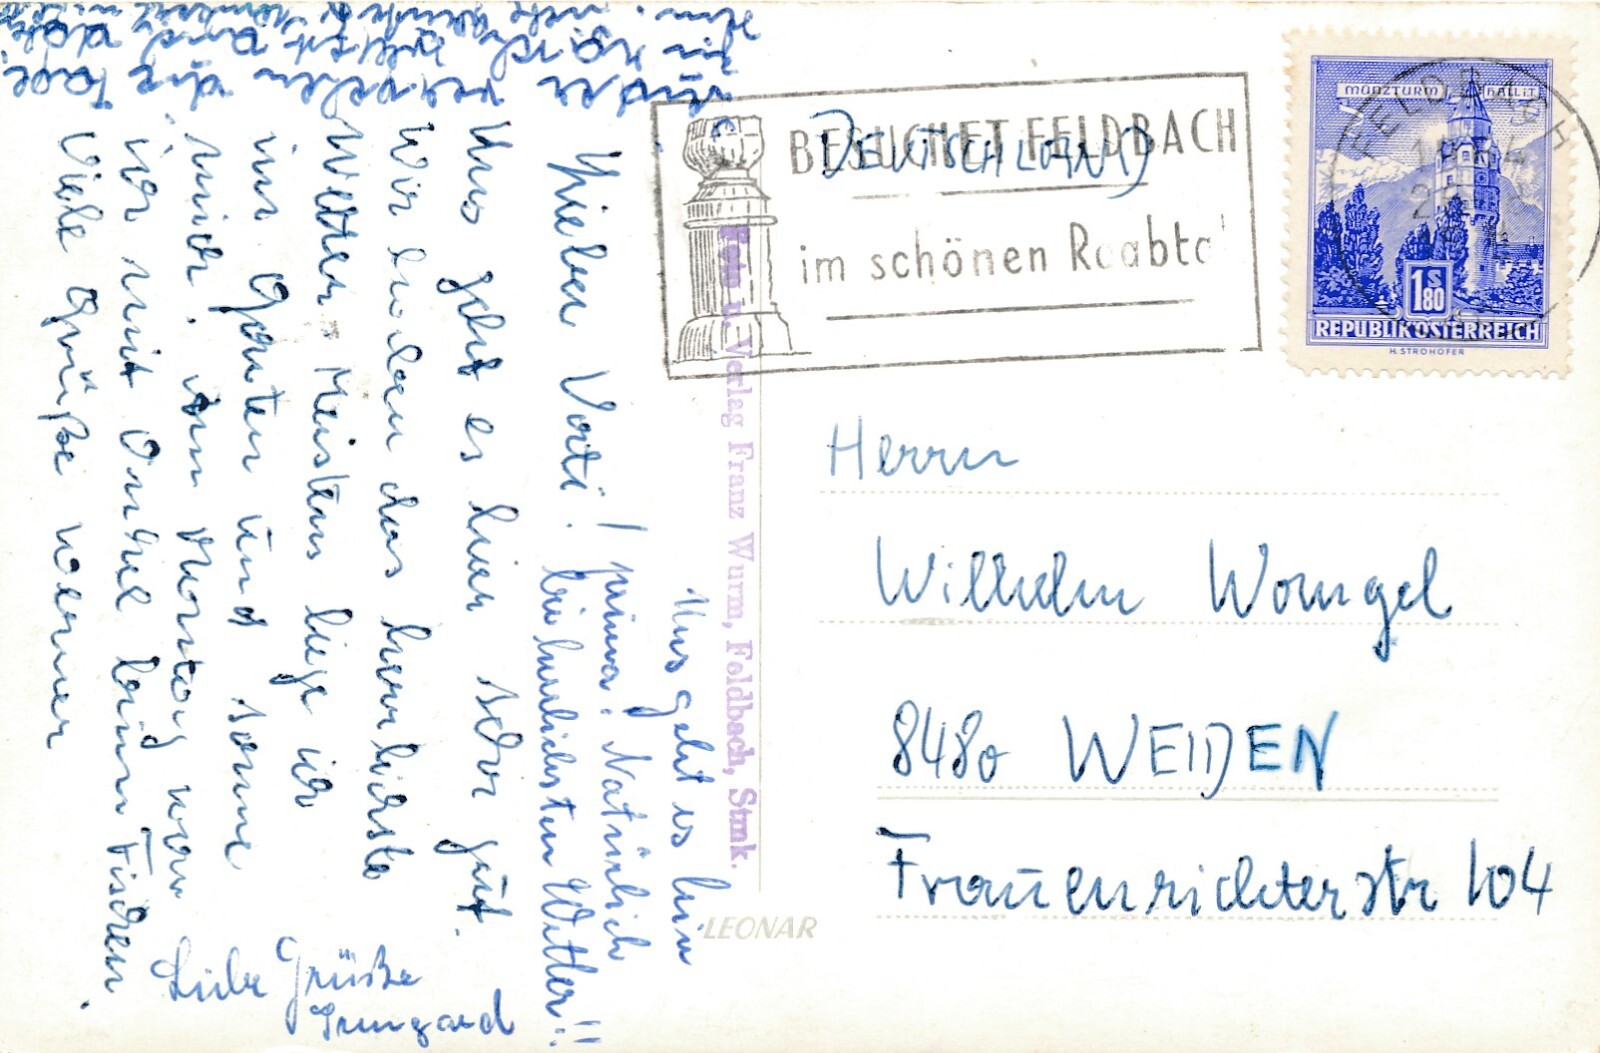 Lieber Vati!
Uns geht es hier sehr gut.
Wir haben das herrlichste
Wetter. Meistens liege ich
im Garten und sonne
mich. Am Dienstag war
ich mit Onkel beim Fischen.
Viele Grüße Werner
Uns geht es hier
prima! Natürlich
bei herrlichsten Wetter!!
Liebe Grüße
Irmgard
die Tage
Foto u. Verlag Franz Wurm, Feldbach, Stmk.
LEONAR
BESUCHET FELDBACH
im schönen Raabta
DEUTSCHLAND
FELDBACH
MÜNZTURM HALL i.T.
1S80
REPUBLIK ÖSTERREICH
H. STROHOFER
Herrn
Wilhelm Wangel
8480 WEIDEN
Frauenrichterstr 104